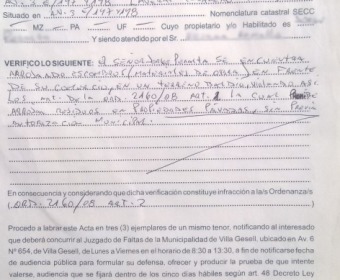 Situado en Av. 3 e/ 197 y 198 Nomenclatura catastral SECC
MZ PA UF Cuyo propietario y/o Habilitado es
Y siendo atendido por el Sr.
VERIFICO LO SIGUIENTE: El Señor se encuentra
arrojando escombros (materiales de obra) en frente
de su comercio, en un terreno baldío, violando as
Los Art. De la ORD 2160/08 Art. 2 la cual
arrojar residuos en Propiedades Privadas, sin Previa
autorización Municipal.
En consecuencia y considerando que dicha verificación constituye infracción a la/s Ordenanza/s
(ORD. 2160/08 Art. 2
Procedo a labrar esta Acta en tres (3) ejemplares de un mismo tenor, notificando al interesado
que deberá concurrir al Juzgado de Faltas de la Municipalidad de Villa Gesell, ubicado en Av. 6
Nº 654, de Villa Gesell, de Lunes a Viernes en el horario de 8:30 a 13:30, a fin de notificarse fecha
de audiencia pública para formular su defensa, ofrecer y producir la prueba de que intente
valerse, audiencia que se fijará dentro de los cinco días hábiles según art. 48 Decreto Ley